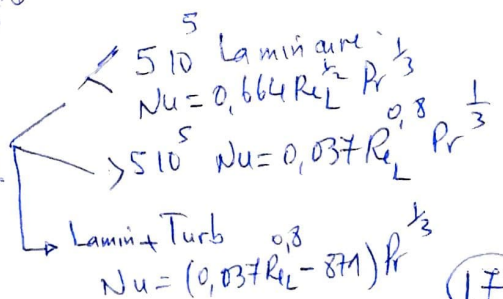 < 5 10^5 Laminaire
Nu = 0,664 Re_L^1/2 Pr^1/3
> 5 10^5 Nu = 0,037 Re_L^0,8 Pr^1/3
Lamin + Turb
Nu = (0,037 Re_L^0,8 - 871) Pr^1/3
17